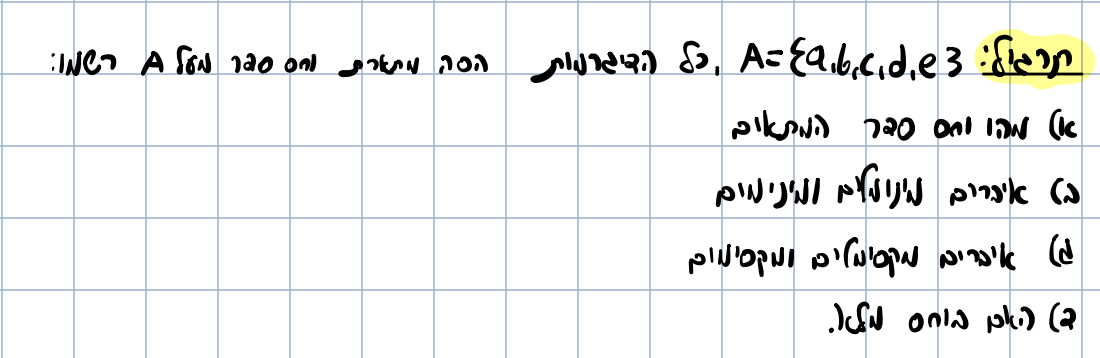 תרגיל: A={a,b,c,d,e}, כל הדיגרמות הסה מתארת יחס סדר מעל A רשמו:
א) מהו יחס סדר המתאים
ב) איברים מינימלים ומינימום
ג) איברים מקסימלים ומקסימום
ד) האם היחס מלא.